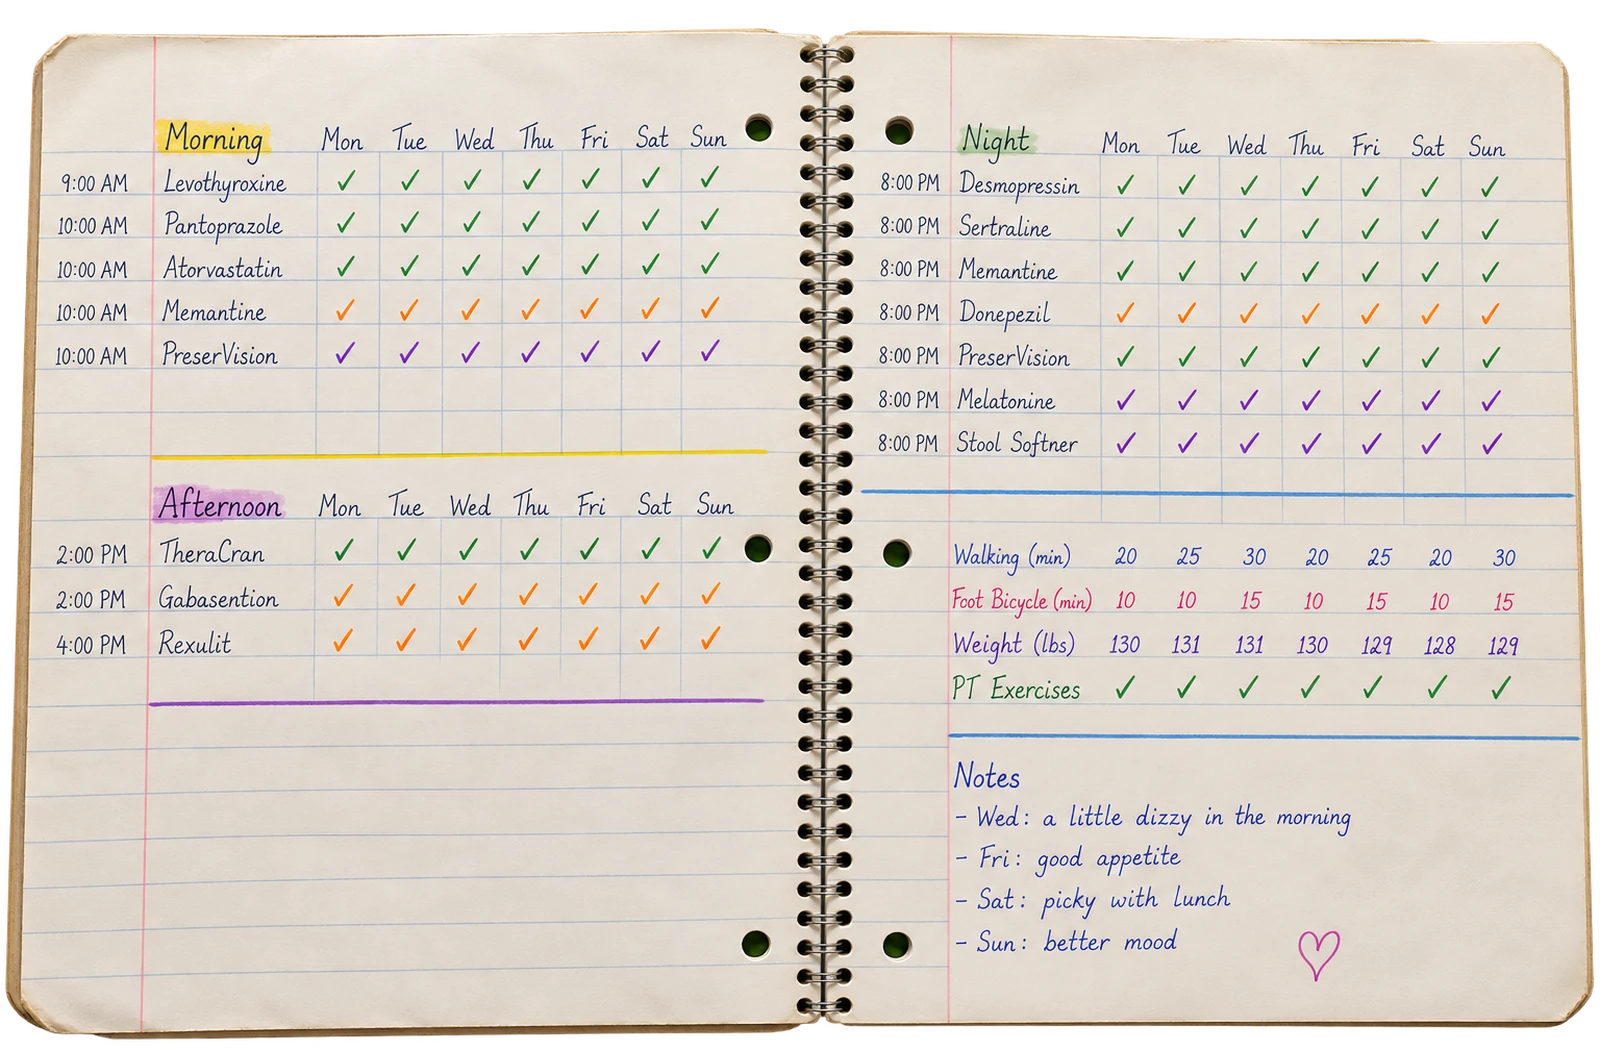 Morning Mon Tue Wed Thu Fri Sat Sun
9:00 AM Levothyroxine ✓ ✓ ✓ ✓ ✓ ✓ ✓
10:00 AM Pantoprazole ✓ ✓ ✓ ✓ ✓ ✓ ✓
10:00 AM Atorvastatin ✓ ✓ ✓ ✓ ✓ ✓ ✓
10:00 AM Memantine ✓ ✓ ✓ ✓ ✓ ✓ ✓
10:00 AM PreserVision ✓ ✓ ✓ ✓ ✓ ✓ ✓
Afternoon Mon Tue Wed Thu Fri Sat Sun
2:00 PM TheraCran ✓ ✓ ✓ ✓ ✓ ✓ ✓
2:00 PM Gabasention ✓ ✓ ✓ ✓ ✓ ✓ ✓
4:00 PM Rexulit ✓ ✓ ✓ ✓ ✓ ✓ ✓
Night Mon Tue Wed Thu Fri Sat Sun
8:00 PM Desmopressin ✓ ✓ ✓ ✓ ✓ ✓ ✓
8:00 PM Sertraline ✓ ✓ ✓ ✓ ✓ ✓ ✓
8:00 PM Memantine ✓ ✓ ✓ ✓ ✓ ✓ ✓
8:00 PM Donepezil ✓ ✓ ✓ ✓ ✓ ✓ ✓
8:00 PM PreserVision ✓ ✓ ✓ ✓ ✓ ✓ ✓
8:00 PM Melatonine ✓ ✓ ✓ ✓ ✓ ✓ ✓
8:00 PM Stool Softner ✓ ✓ ✓ ✓ ✓ ✓ ✓
Walking (min) 20 25 30 20 25 20 30
Foot Bicycle (min) 10 10 15 10 15 10 15
Weight (lbs) 130 131 131 130 129 128 129
PT Exercises ✓ ✓ ✓ ✓ ✓ ✓ ✓
Notes
- Wed: a little dizzy in the morning
- Fri: good appetite
- Sat: picky with lunch
- Sun: better mood